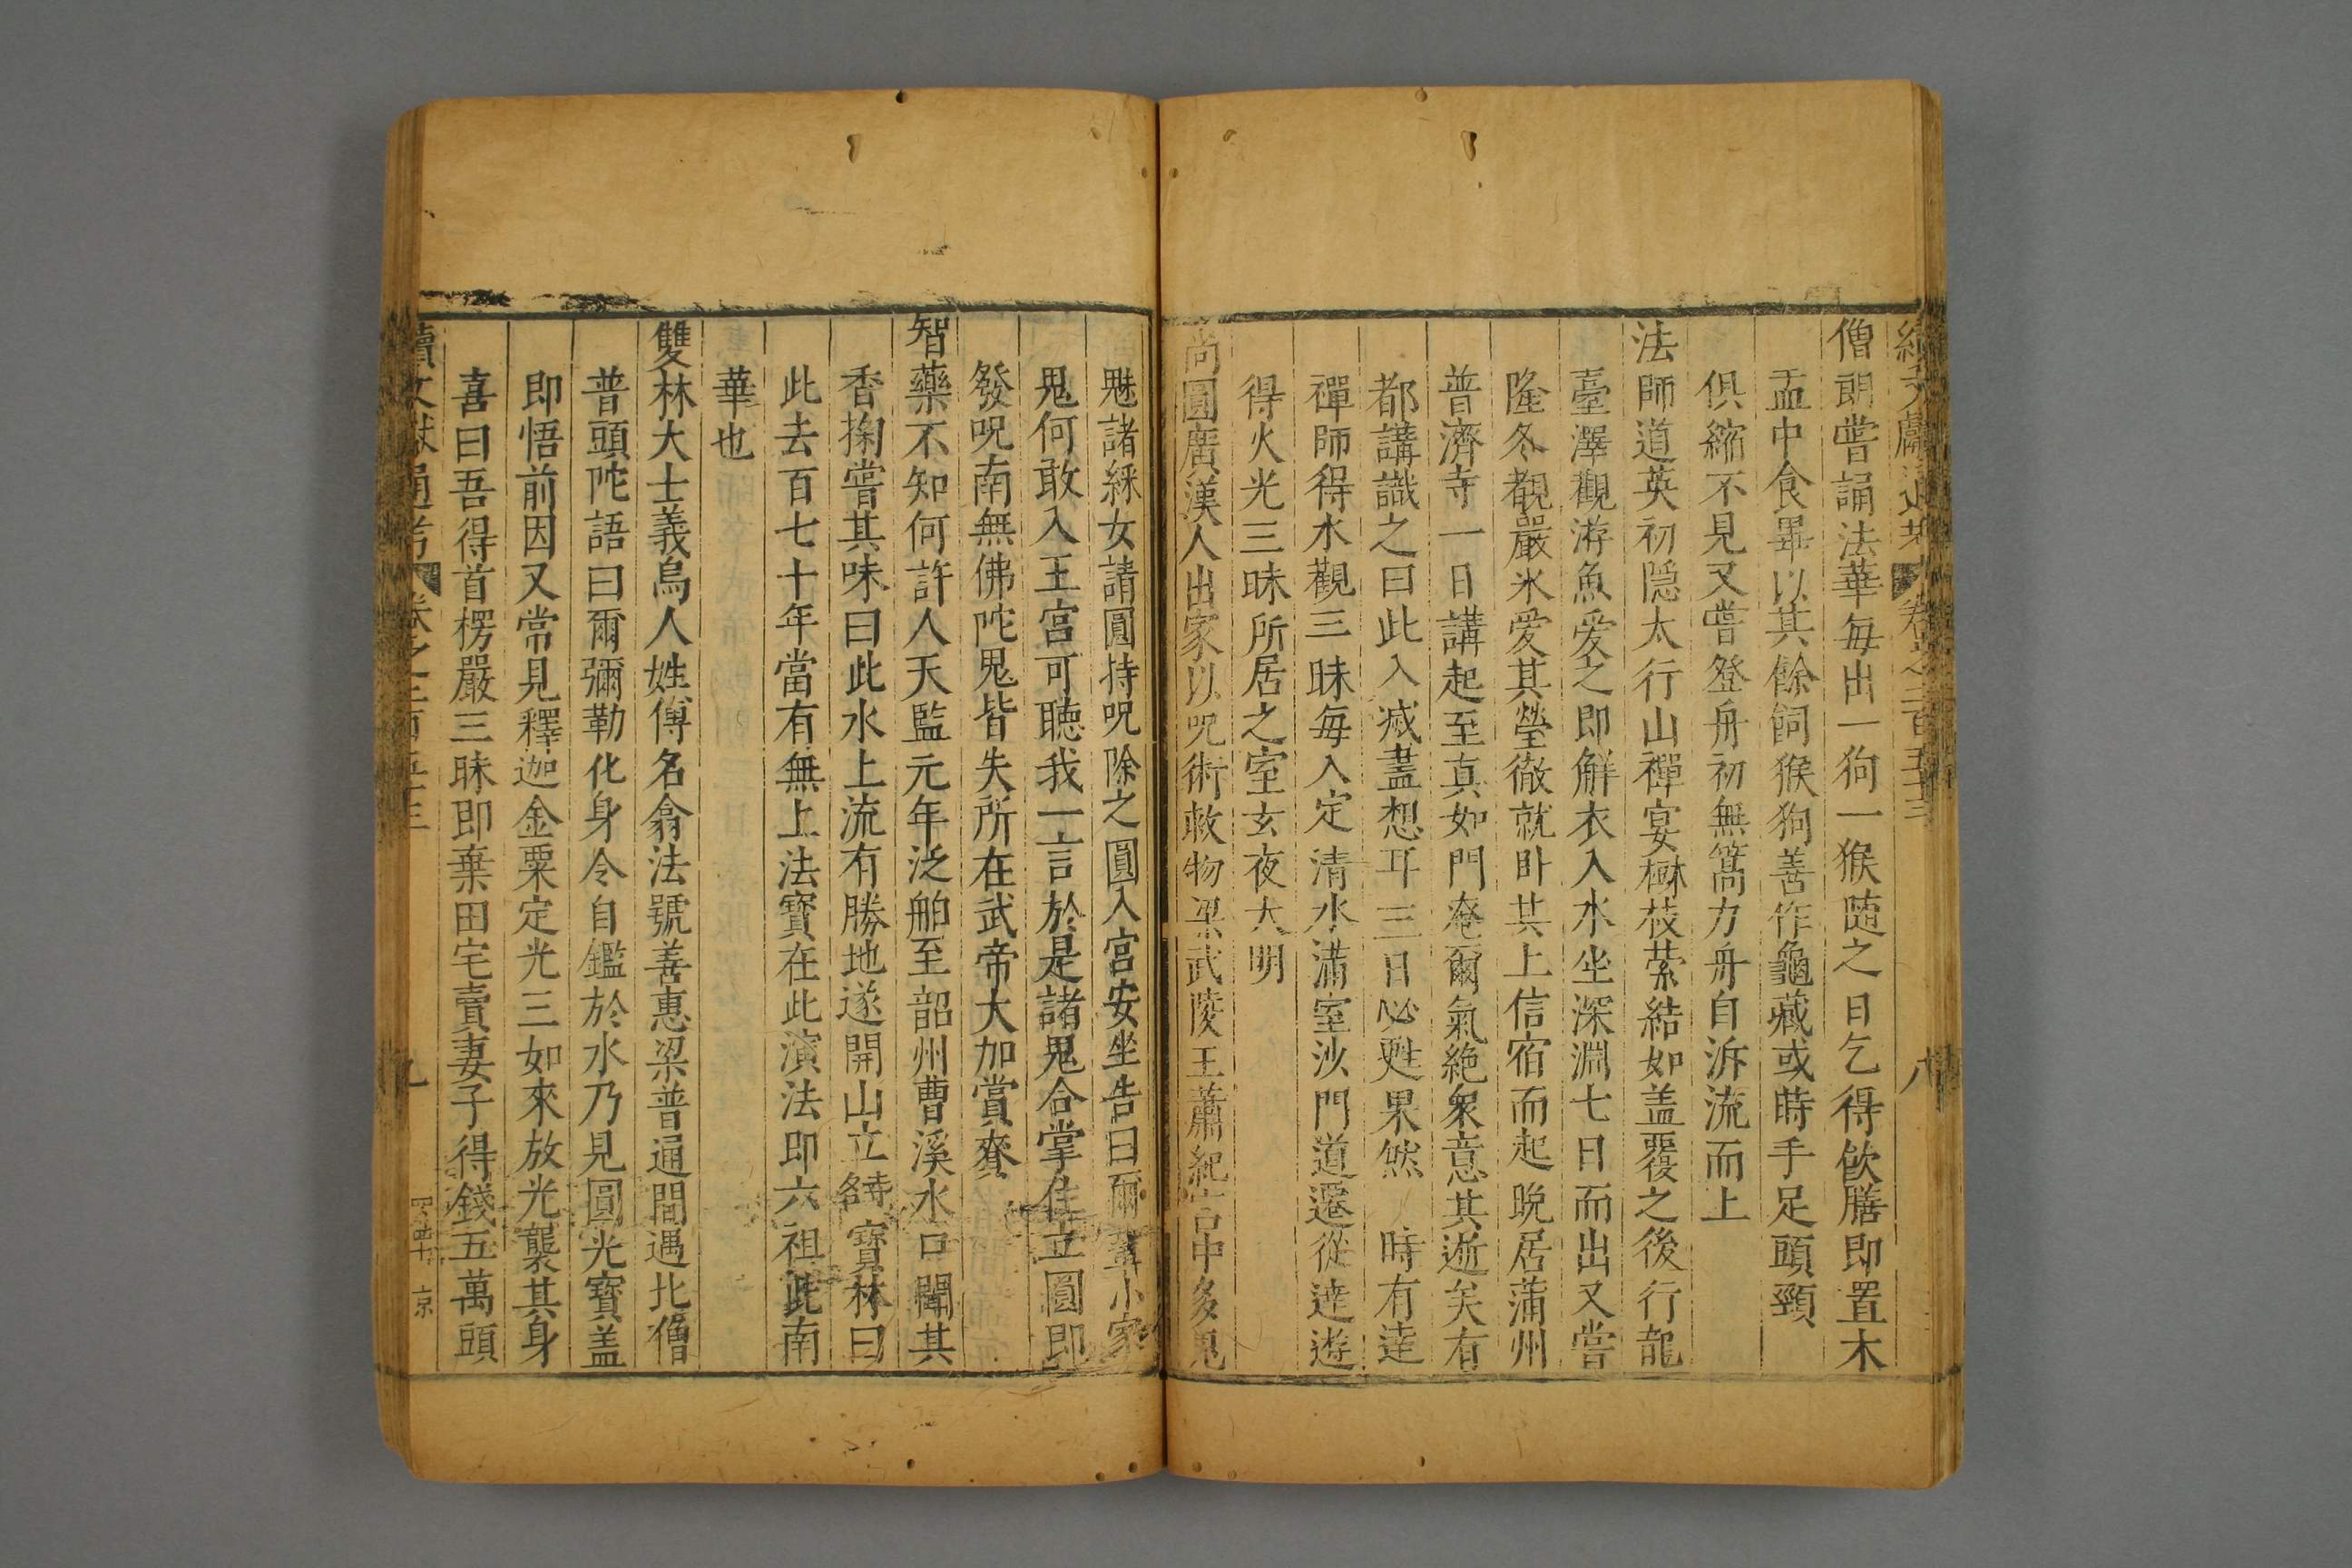 續文獻通考 卷之二百五十三 八
僧朗嘗誦法華每出一狗一猴隨之日乞得飲膳即置木
盂中食畢以其餘飼猴狗善作龜藏或時手足頭頸
俱縮不見又嘗登舟初無篙力舟自泝流而上
法師道英初隱太行山禪宴樹枝縈結如盖覆之後行龍
臺澤觀游魚爱之即觧衣入水坐深淵七日而出又嘗
隆冬覩嚴氷愛其瑩徹就卧其上信宿而起晩居蒲州
普濟寺一日講起至真如門奄爾氣絶衆意其逝矣有
都講識之曰此入滅盡想耳三日必甦果然 時有逹
禪師得水觀三昧每入定清水滿室沙門道遷從逹遊
得火光三昧所居之室玄夜大明
尚圓廣漢人出家以呪術救物梁武陵王蕭紀宫中多鬼
魅諸綵女請圓持呪除之圓入宫安坐告曰爾輩小家
鬼何敢入王宫可聽我一言於是諸鬼合掌住立圓即
發呪南無佛陀鬼皆失所在武帝大加賞賚
智藥不知何許人天監元年泛舶至韶州曹溪水口聞其
香掬嘗其味曰此水上流有勝地遂開山立名寺寶林曰
此去百七十年當有無上法寶在此演法即六祖此南
華也
雙林大士義烏人姓傅名翕法號善惠梁普通間遇北僧
普頭陀語曰爾彌勒化身令自鑑於水乃見圓光寶盖
即悟前因又常見釋迦金粟定光三如來放光襲其身
喜曰吾得首楞嚴三昧即棄田宅賣妻子得錢五萬頭
續文獻通考 卷之二百五十三 九 京